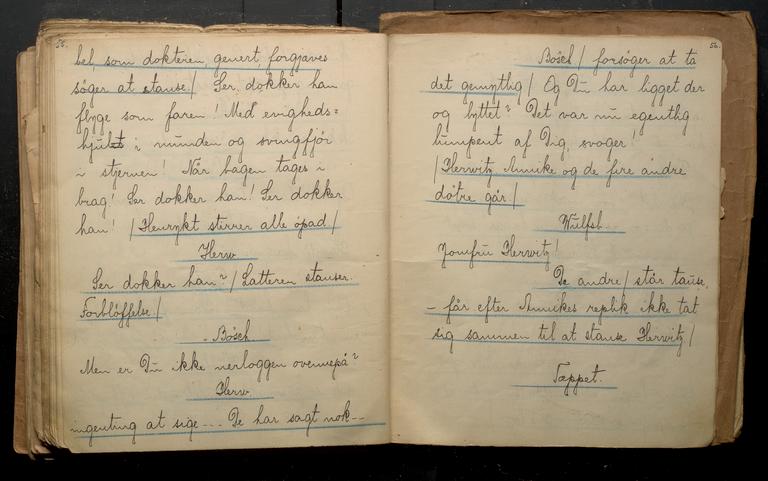 55.
bel, som dokteren, genert, forgjæves
søger at stanse / Ser, dokker han
flyge som faren! Med evigheds=
hjulet i munden og svingfjör
i stjernen! Når bagen tages i
brag! Ser dokker han! Ser dokker
han! / Henrykt stirrer alle opad /
Herw.
Ser dokker han? / Latteren stanser.
Forbløffelse /
Bösch
Men er Du ikke nerloggen ovennepå?
Herw.
ingenting at sige... De har sagt nok...
56.
Bösch / forsøger at ta
det gemytlig / Og Du har ligget der
og lyttet? Det var nu egentlig
limpent af Dig, svoger!
/ Herwitz, Annike og de fire andre
døtre går /
Wulfsb.
Jomfru Herwitz!
De andre / står tause,
– får efter Annikes replik ikke tat
sig sammen til at stanse Herwitz /
Tæppet.